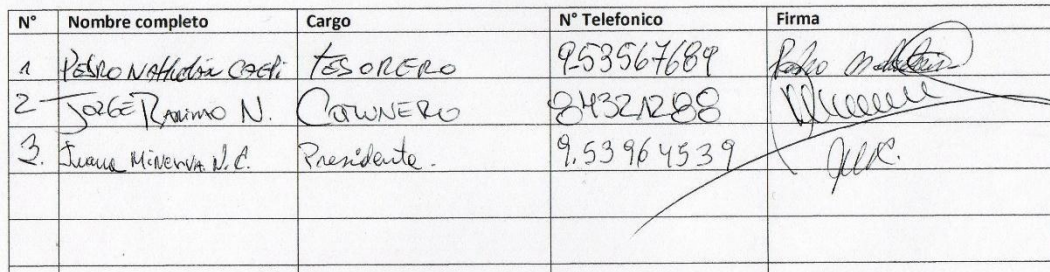 N° Nombre completo Cargo N° Telefonico Firma
1 PEDRO CAEPi TESORERO 9-53567689 Pedro
2 JORGE RAMIMO N. COMUNERO 84321288
3. Juana MiNERVA. N. C. Presidente. 9.53964539